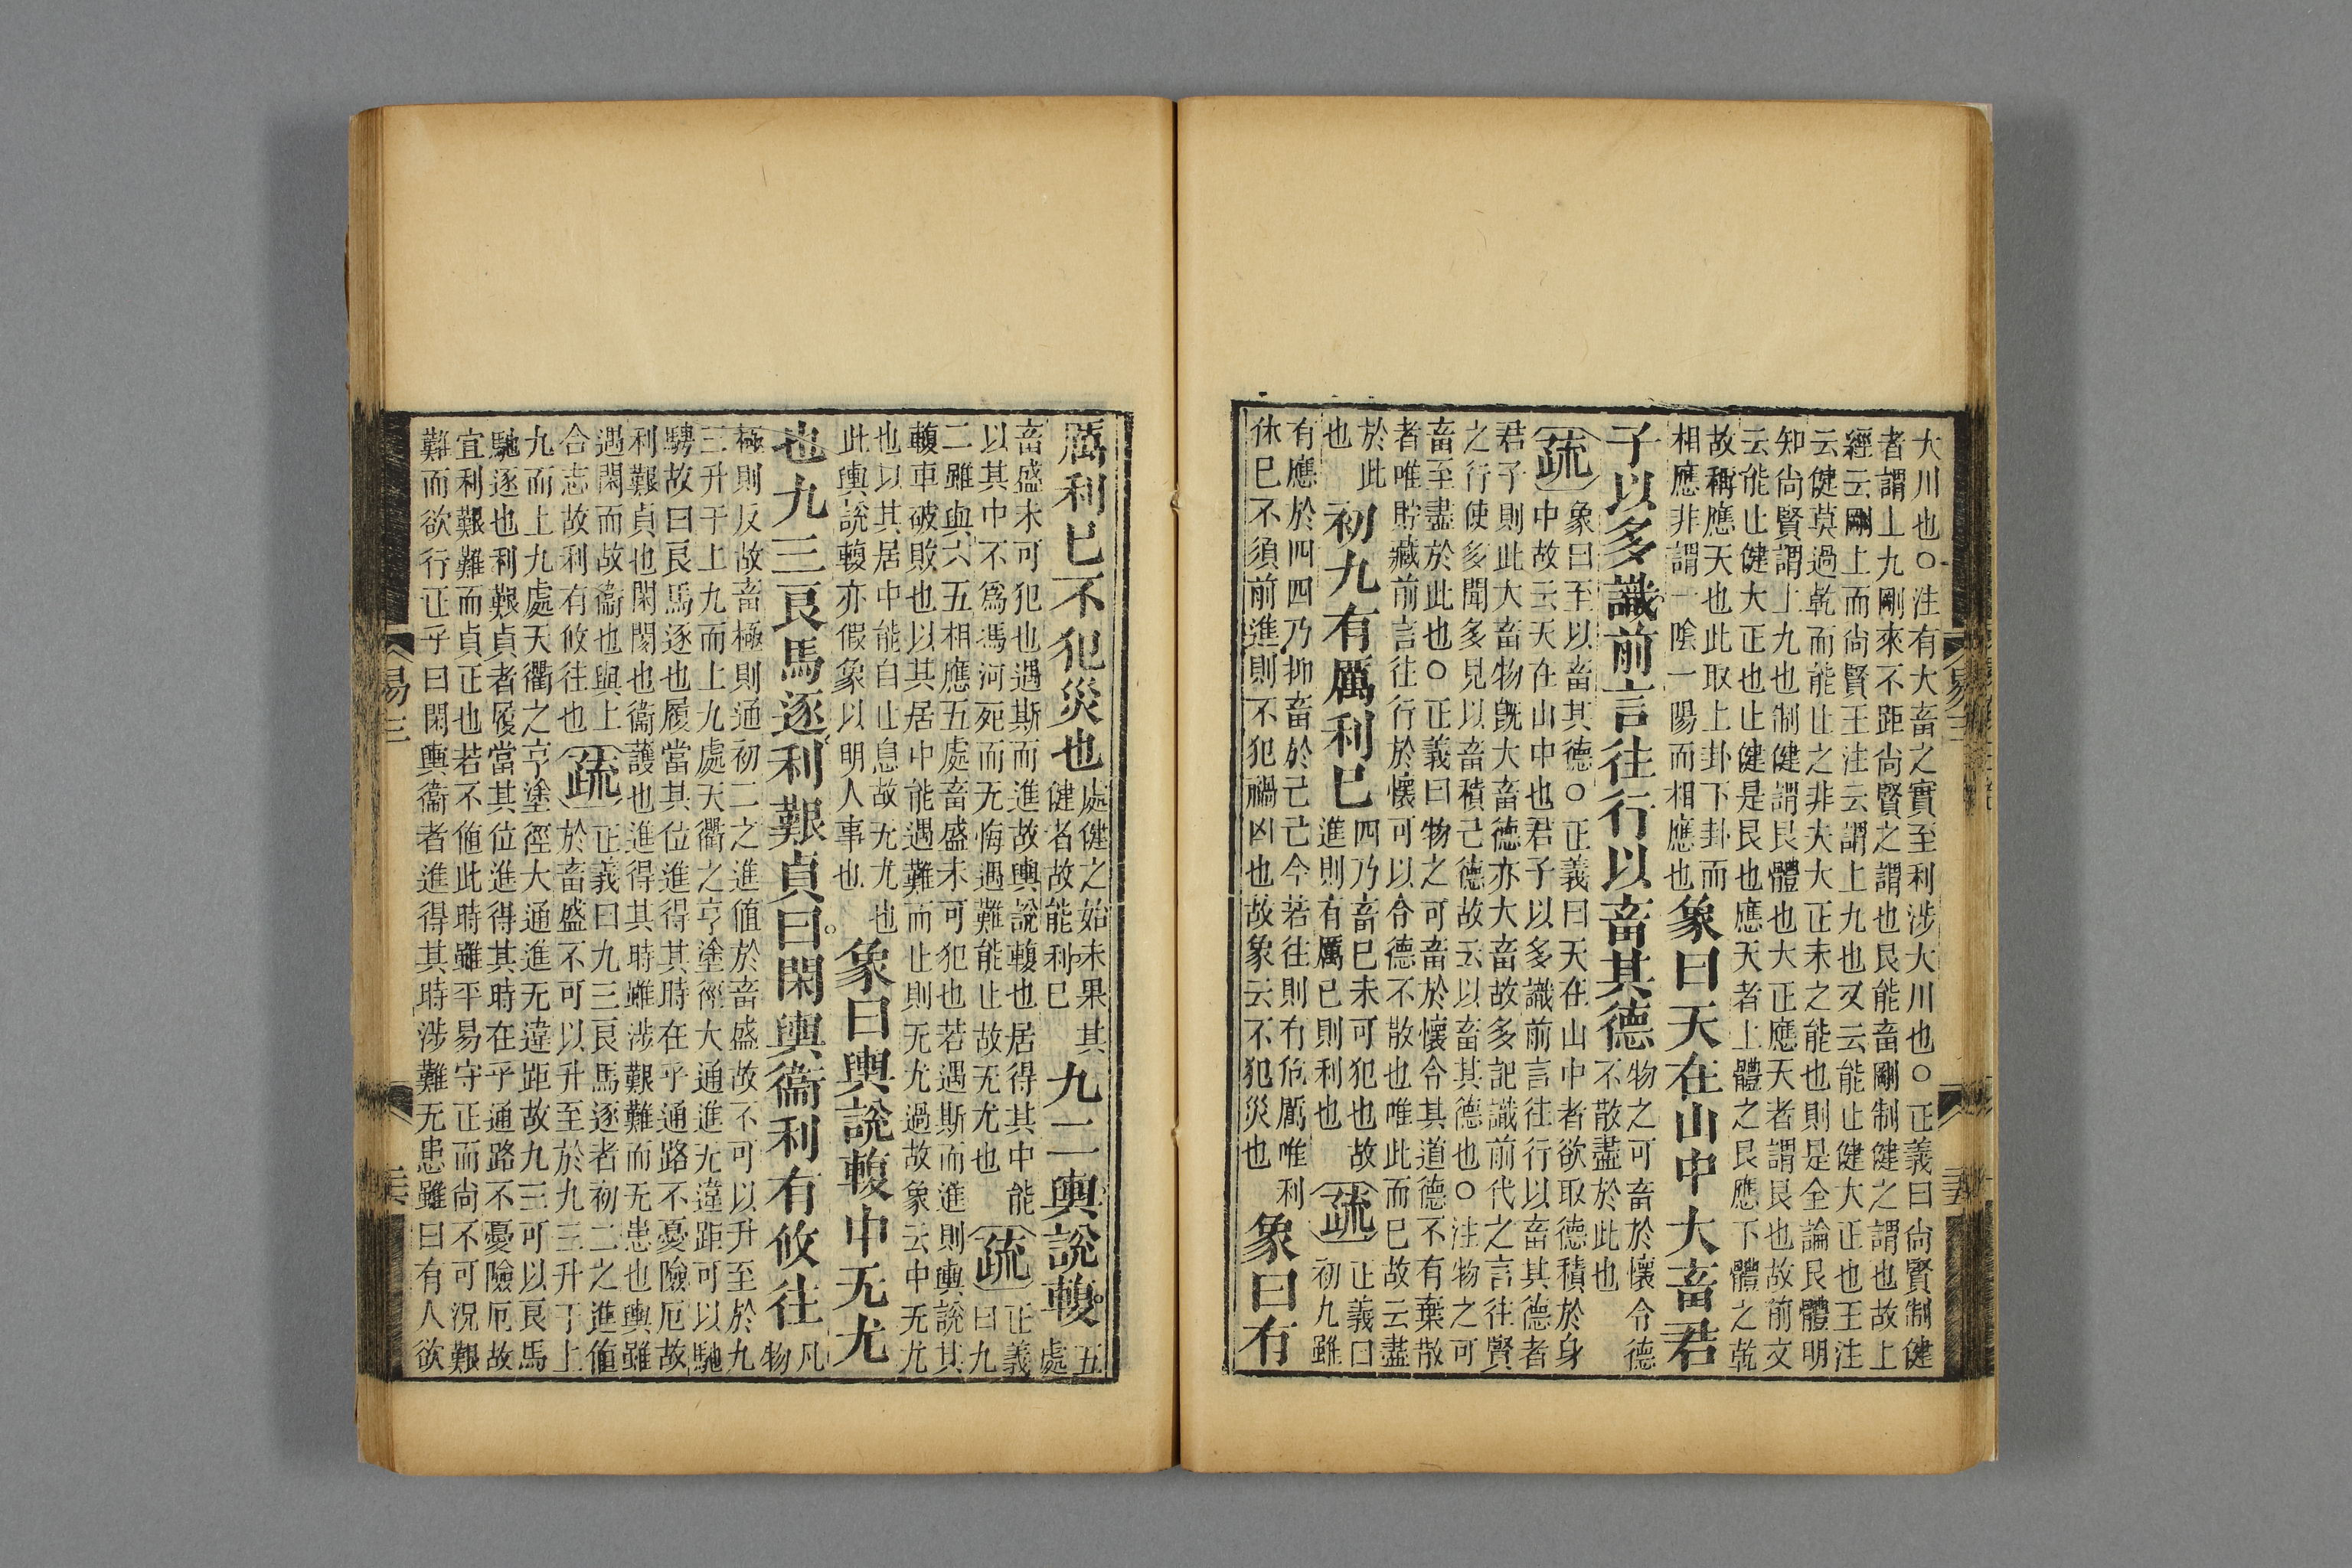 大川也○注有大畜之實至利涉大川也○正義曰尚賢制健
者謂上九剛來不距尚賢之謂也艮能畜剛制健之謂也故上
經云剛上而尚賢王注云謂上九也又云能止健大正也王注
云健莫過乾而能止之非夫大正未之能也則是全論艮體明
知尚賢謂上九也制健謂艮體也大正應天者謂艮也故前文
云能止健大正也止健是艮也應天者上體之艮應下體之乾
故稱應天也此取上卦下卦而
相應非謂一陰一陽而相應也
象曰天在山中大畜君
子以多識前言往行以畜其德
物之可畜於懷令德
不散盡於此也
疏
象曰至以畜其德○正義曰天在山中者欲取德積於身
中故云天在山中也君子以多識前言往行以畜其德者
君子則此大畜物旣大畜德亦大畜故多記識前代之言往賢
之行使多聞多見以畜積己德故云以畜其德也○注物之可
畜至盡於此也○正義曰物之可畜於懷令其道德不有棄散
者唯貯藏前言往行於懷可以令德不散也唯此而已故云盡
於此
也
初九有厲利已
四乃畜已未可犯也故
進則有厲已則利也
疏
正義曰
初九雖
有應於四四乃抑畜於己己今若往則有危厲唯利
休已不須前進則不犯禍凶也故象云不犯災也
象曰有
易三
厲利已不犯災也
處健之始未果其
健者故能利已
九二輿說輹
五
處
畜盛未可犯也遇斯而進故輿說輹也居得其中能
以其中不爲馮河死而无悔遇難能止故无尤也
疏
正義
曰九
二雖與六五相應五處畜盛未可犯也若遇斯而進則輿說其
輹車破敗也以其居中能遇難而止則无尤過故象云中无尤
也以其居中能自止息故无尤也
此輿說輹亦假象以明人事也
象曰輿說輹中无尤
也九三良馬逐利艱貞曰閑輿衞利有攸往
凡
物
極則反故畜極則通初二之進值於畜盛故不可以升至於九
三升于上九而上九處天衢之亨塗徑大通進无違距可以馳
騁故曰良馬逐也履當其位進得其時在乎通路不憂險厄故
利艱貞也閑閡也衞護也進得其時雖涉艱難而无患也輿雖
遇閑而故衞也與上
合志故利有攸往也
疏
正義曰九三良馬逐者初二之進值
於畜盛不可以升至於九三升于上
九而上九處天衢之亨塗徑大通進无違距故九三可以良馬
馳逐也利艱貞者履當其位進得其時在乎通路不憂險厄故
宜利艱難而貞正也若不值此時雖平易守正而尚不可況艱
難而欲行正乎曰閑輿衞者進得其時涉難无患雖曰有人欲
易三